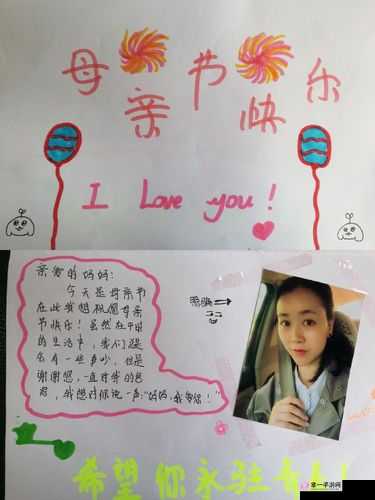 母亲节快乐
I Love you!
亲爱的妈妈:
今天是母亲节
在此我想祝愿母亲
节快乐!虽然在平时
的生活中,我们还是
会有一些争吵,但是
谢谢您,一直对我的恩
我想对你说一声:"妈妈,我爱您!"
照骗
希望你永驻